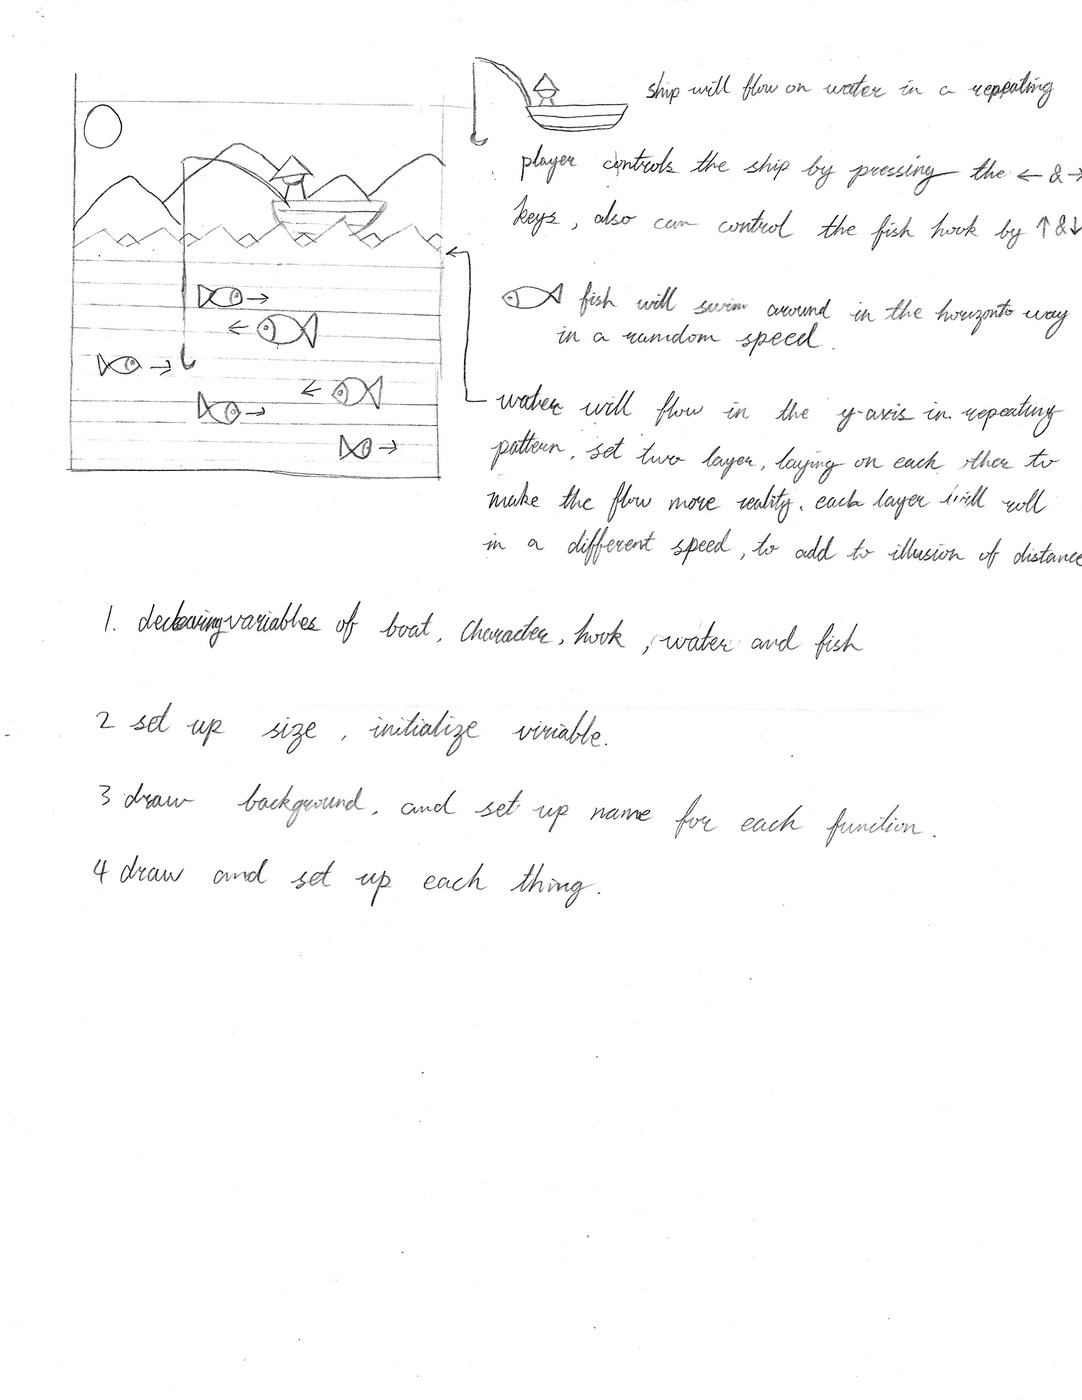 ship will flow on water in a repeating
player controls the ship by pressing the ← & →
keys, also can control the fish hook by ↑ & ↓
fish will swim around in the horizonto way
in a ramdom speed.
water will flow in the y-axis in repeating
pattern, set two layer, laying on each other to
make the flow more reality. each layer will roll
in a different speed, to add to illusion of distance
1. declearing variables of boat, character, hook, water and fish
2 set up size, initialize viriable.
3 draw background, and set up name for each function.
4 draw and set up each thing.